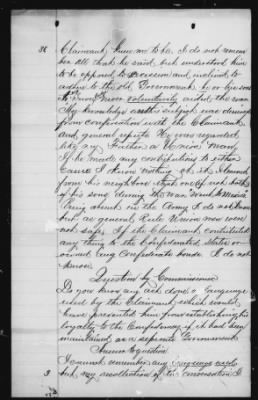 36
Claimant, knew me to be. I do not remem
ber all that he said, but understood him
to be opposed to secession and inclined to
adhere to the old Government. he or his son
do not know voluntarily aided the war
My knowledge on this subject was derived
from conversation with the Claimant
and general repute He was regarded
like my Father a Union Man,
If he made any contributions to either
cause I know nothing of it. I learned
from his neighbors that one if not both
of his sons during the war
being absent in the Army I do not know
but as general Rule Union men were
not safe. If the Claimant contributed
any thing to the Confederate States or
owned any Confederate bonds I do not
know.
Question by Commissioner
Do you know any act done, or language
used by the Claimant which would
have prevented him from establishing his
loyalty to the Confederacy if it had been
maintained as a separate Government
Answer to question
I cannot remember any language used
but my recollection of the conversation I
3